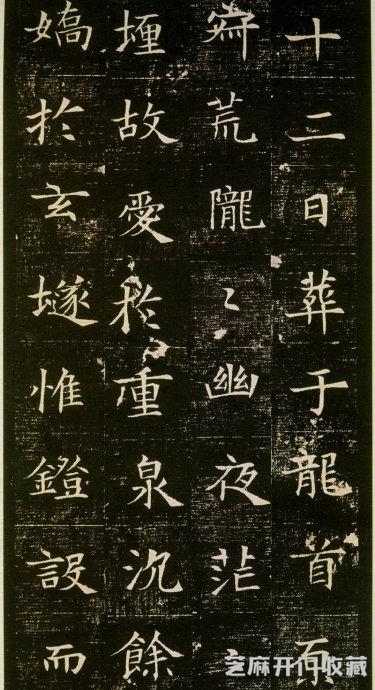 十二日葬于龍首原
荒隴〻幽夜茫〻
堙故愛於重泉沉餘
嬌於玄㙛惟鐙設而
芝麻开门收藏